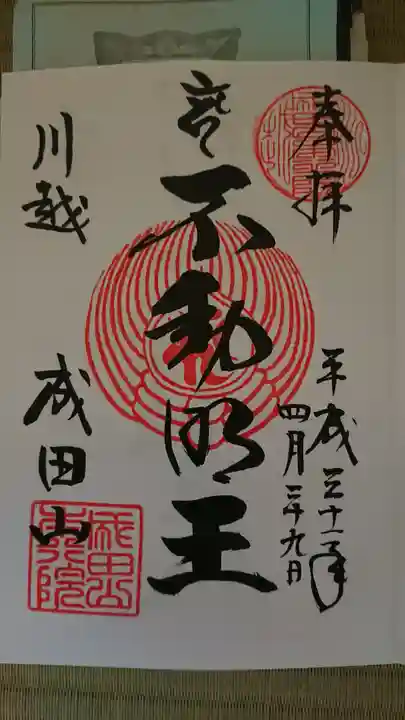 奉拝
平成三十一年
四月二十九日
不動明王
川越
成田山